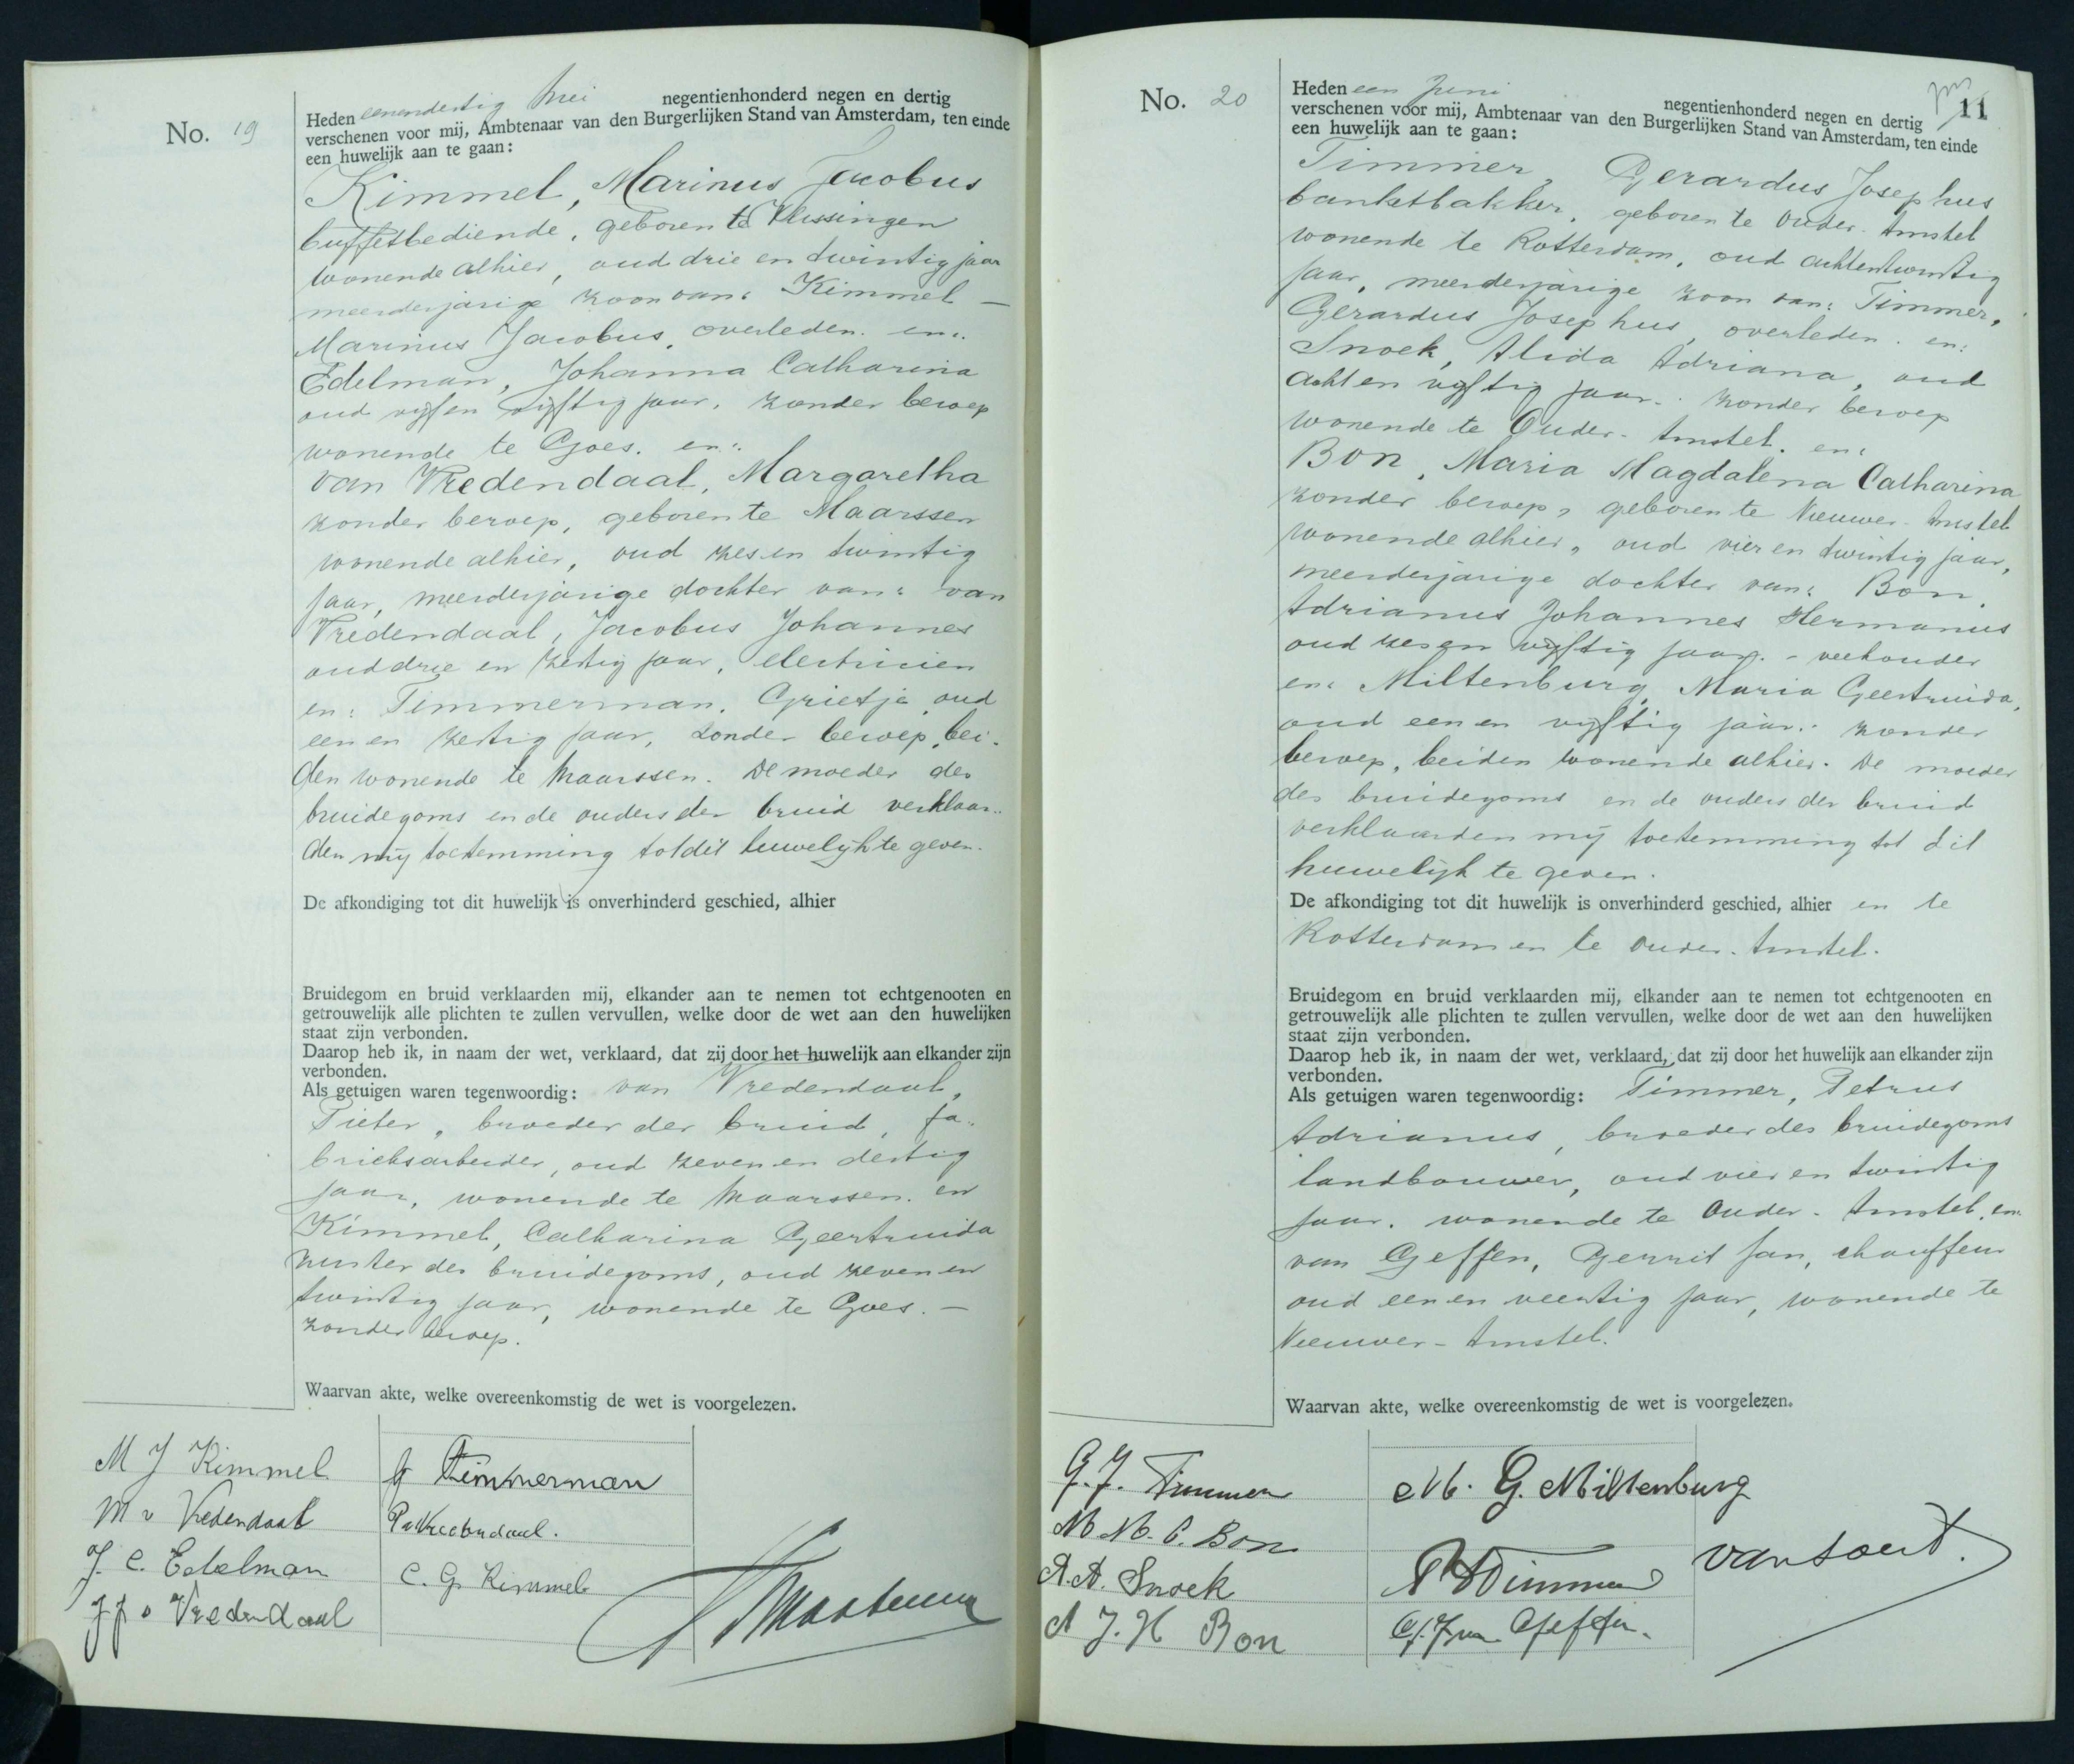 No. 19
Heden eenendertig Mei negentienhonderd negen en dertig
verschenen voor mij, Ambtenaar van den Burgerlijken Stand van Amsterdam, ten einde
een huwelijk aan te gaan:
Kimmel, Marinus Jacobus
buffetbediende, geboren te Vlissingen
wonende alhier, oud drie en twintig jaar
meerderjarige zoon van: Kimmel —
Marinus Jacobus, overleden. en:
Edelman, Johanna Catharina
oud vijf en vijftig jaar, zonder beroep
wonende te Goes. en:
van Vredendaal, Margaretha
zonder beroep, geboren te Maarssen
wonende alhier, oud zes en twintig
jaar, meerderjarige dochter van: van
Vredendaal, Jacobus Johannes
oud drie en zestig jaar, electricien
en: Timmerman, Grietje, oud
een en zestig jaar, zonder beroep, bei-
den wonende te Maarssen. De moeder des
bruidegoms en de ouders der bruid verklaar-
den mij toestemming tot dit huwelijk te geven.
De afkondiging tot dit huwelijk is onverhinderd geschied, alhier
Bruidegom en bruid verklaarden mij, elkander aan te nemen tot echtgenooten en
getrouwelijk alle plichten te zullen vervullen, welke door de wet aan den huwelijken
staat zijn verbonden.
Daarop heb ik, in naam der wet, verklaard, dat zij door het huwelijk aan elkander zijn
verbonden.
Als getuigen waren tegenwoordig: van Vredendaal,
Pieter, broeder der bruid, fa-
brieksarbeider, oud zeven en dertig
jaar, wonende te Maarssen. en
Kimmel, Catharina Geertruida
zuster des bruidegoms, oud zeven en
twintig jaar, wonende te Goes. —
zonder beroep.
Waarvan akte, welke overeenkomstig de wet is voorgelezen.
M J Kimmel
M v Vredendaal
J. C. Edelman
J J v Vredendaal
G Timmerman
P v Vredendaal.
C. G. Kimmel
No. 20
11
Heden een Juni negentienhonderd negen en dertig
verschenen voor mij, Ambtenaar van den Burgerlijken Stand van Amsterdam, ten einde
een huwelijk aan te gaan:
Timmer, Gerardus Josephus
banketbakker, geboren te Ouder-Amstel
wonende te Rotterdam, oud achtentwintig
jaar, meerderjarige zoon van: Timmer,
Gerardus Josephus, overleden. en:
Snoek, Alida Adriana, oud
acht en vijftig jaar. zonder beroep
wonende te Ouder-Amstel. en:
Bon, Maria Magdalena Catharina
zonder beroep, geboren te Nieuwer-Amstel
wonende alhier, oud vier en twintig jaar,
meerderjarige dochter van: Bon,
Adrianus Johannes Hermanus
oud zes en vijftig jaar. - veehouder
en: Miltenburg, Maria Geertruida,
oud een en vijftig jaar. zonder
beroep, beiden wonende alhier. De moeder
des bruidegoms en de ouders der bruid
verklaarden mij toestemming tot dit
huwelijk te geven.
De afkondiging tot dit huwelijk is onverhinderd geschied, alhier en te
Rotterdam en te Ouder-Amstel.
Bruidegom en bruid verklaarden mij, elkander aan te nemen tot echtgenooten en
getrouwelijk alle plichten te zullen vervullen, welke door de wet aan den huwelijken
staat zijn verbonden.
Daarop heb ik, in naam der wet, verklaard, dat zij door het huwelijk aan elkander zijn
verbonden.
Als getuigen waren tegenwoordig: Timmer, Petrus
Adrianus, broeder des bruidegoms
landbouwer, oud vier en twintig
jaar, wonende te Ouder-Amstel, en
van Geffen, Gerrit Jan, chauffeur
oud een en veertig jaar, wonende te
Nieuwer-Amstel.
Waarvan akte, welke overeenkomstig de wet is voorgelezen.
G. J. Timmer
M. M. C. Bon
A. A. Snoek
A J. H Bon
M. G. Miltenburg
P A Timmer
G. J. van Geffen.